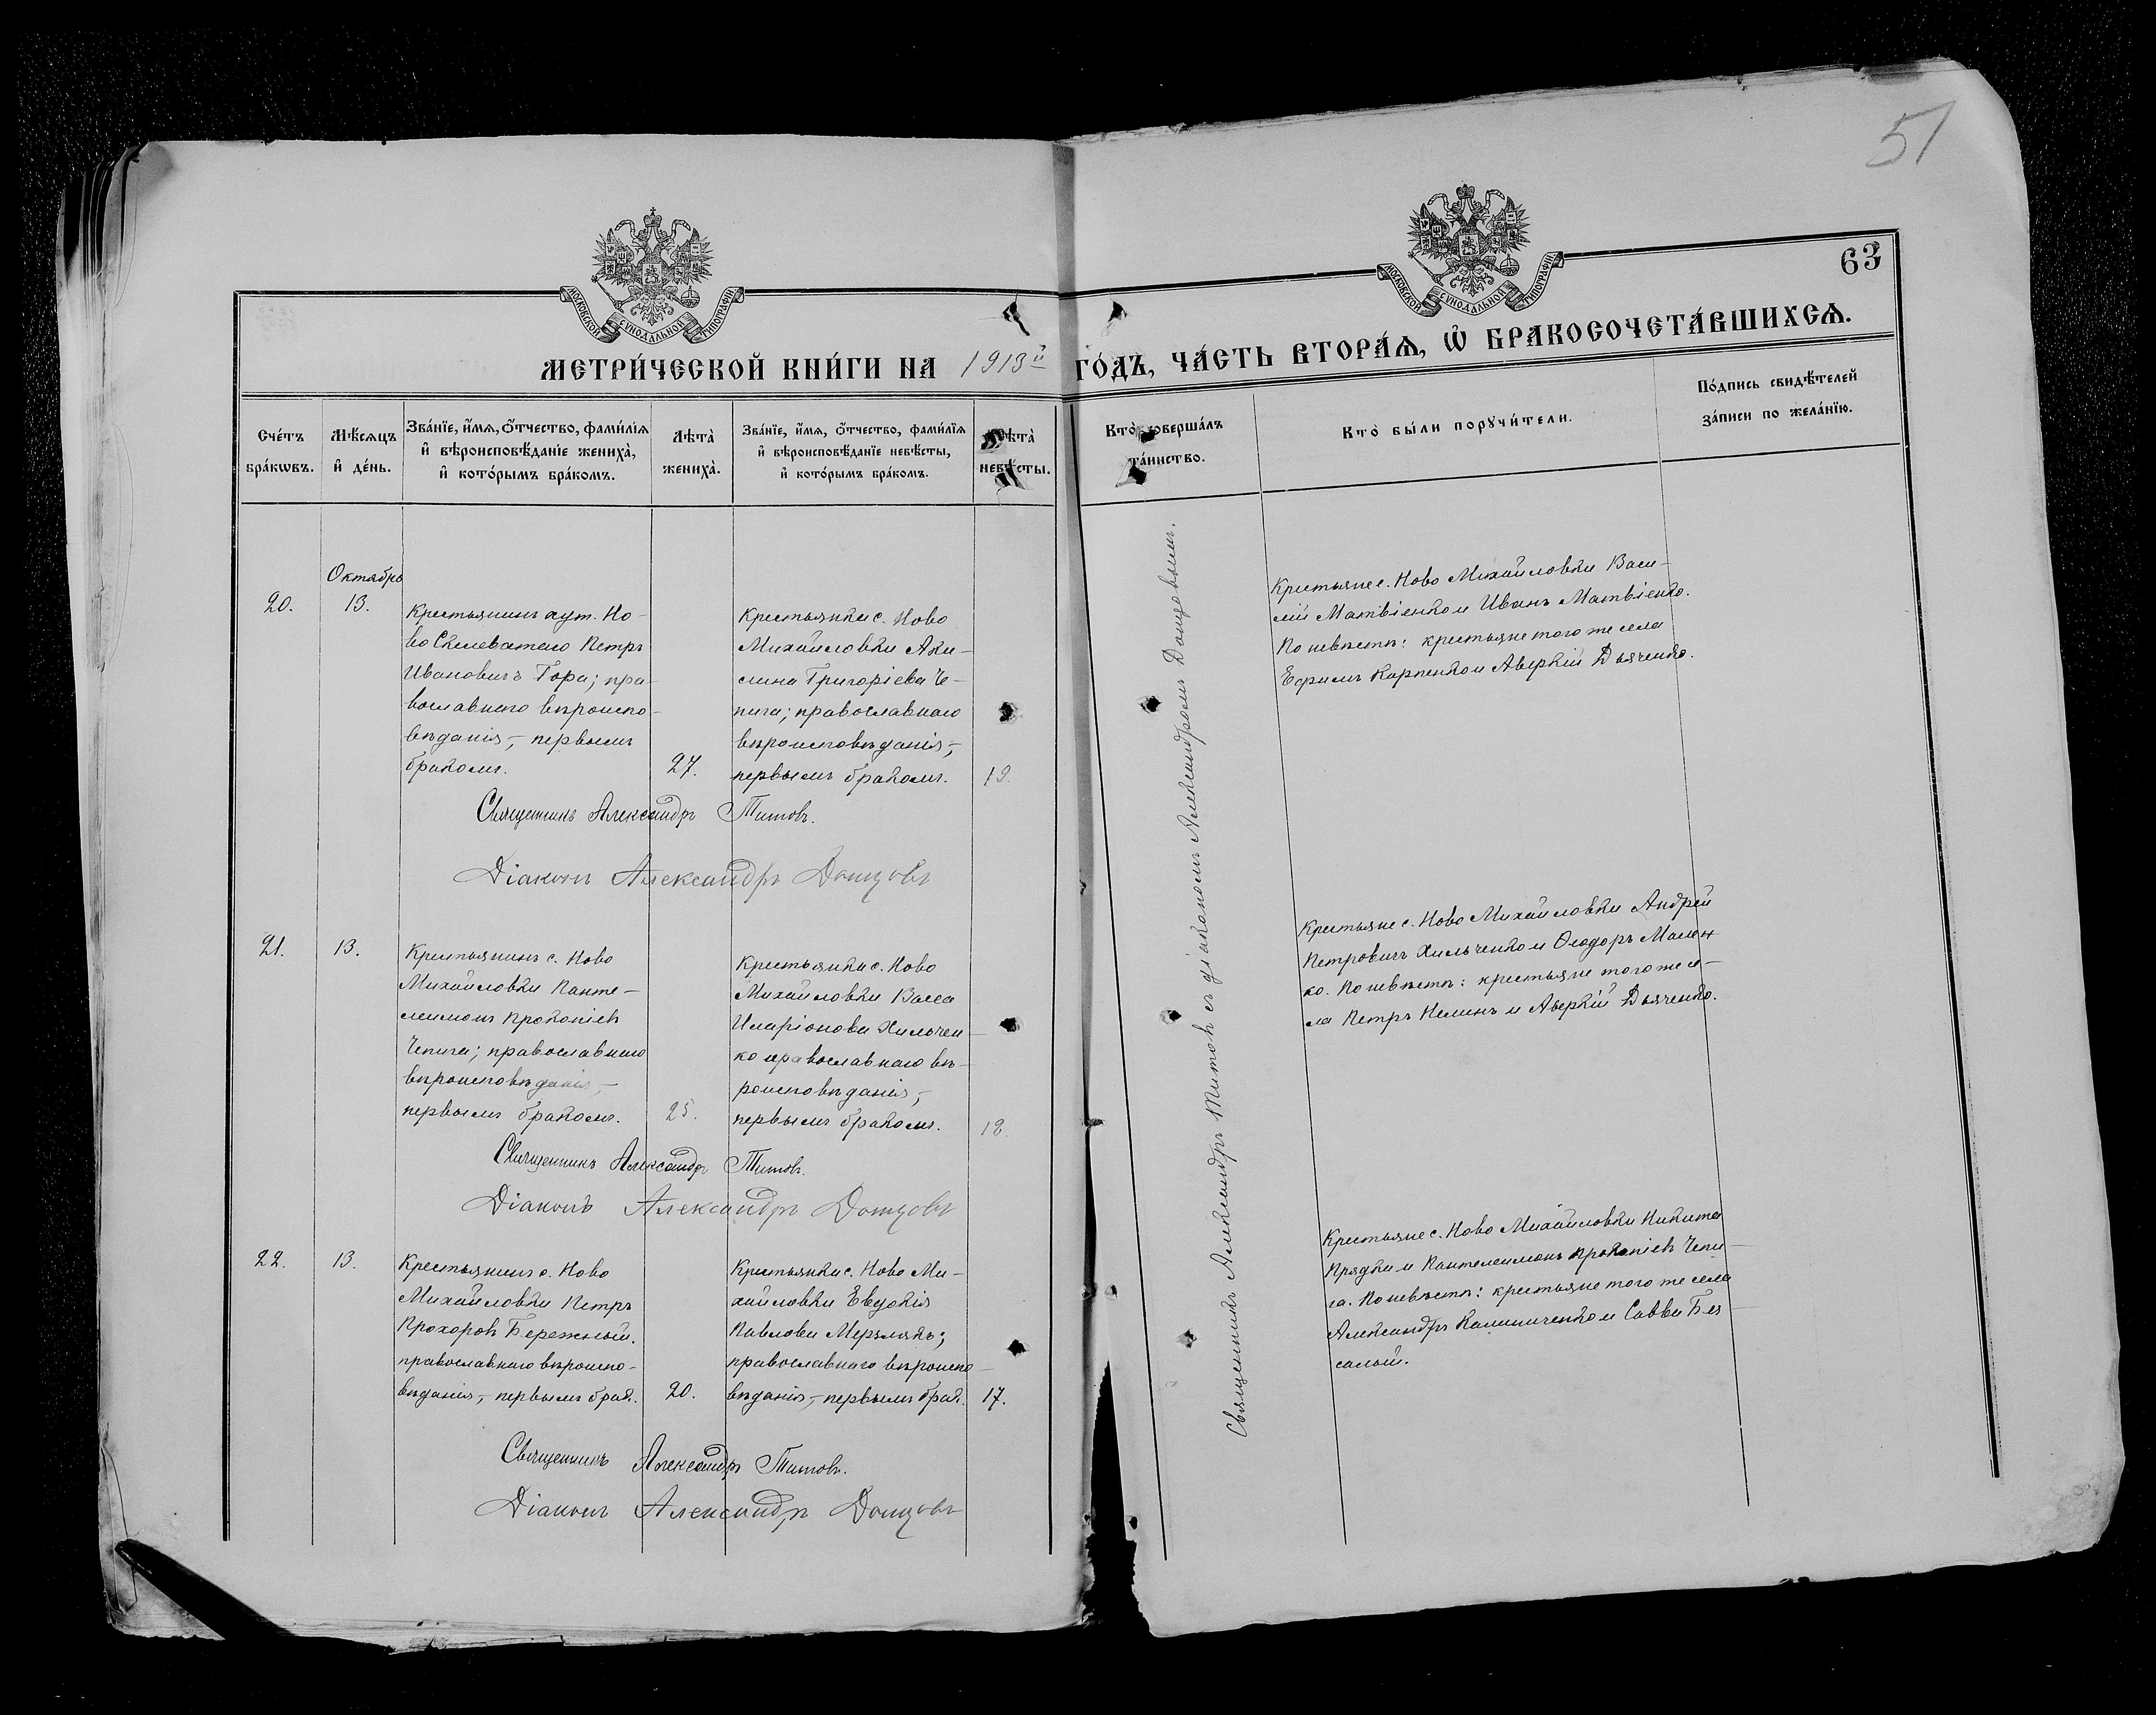 51
63
МОСКОВСКОЙ СѴНОДАЛЬНОЙ ТИПОГРАФІИ
МОСКОВСКОЙ СѴНОДАЛЬНОЙ ТИПОГРАФІИ
МЕТРИ́ЧЕСКОЙ КНИ́ГИ НА 1913й ГО́ДЪ, ЧА́СТЬ ВТОРА́Ѧ, Ѡ҆ БРАКОСОЧЕТА́ВШИХСѦ.
Сче́тъ
бра́кѡвъ.
Мѣ́сѧцъ
и҆ де́нь.
Зва́нїе, и҆́мѧ, ѻ҆́тчество, фами́лїѧ
и҆ вѣроисповѣ́данїе жениха̀,
и҆ кото́рымъ бра́комъ.
Лѣта̀
жениха̀.
Зва́нїе, и҆́мѧ, ѻ҆́тчество, фами́лїѧ
и҆ вѣроисповѣ́данїе невѣ́сты,
и҆ кото́рымъ бра́комъ.
Лѣта̀
невѣ́сты.
Кто̀ соверша́лъ
та́инство.
Кто̀ бы́ли порꙋчи́тели.
По́дпись свидѣ́телей
за́писи по жела́нїю.
20.
Октябрь
13.
Крестьянинъ хут. Но-
во Скелеватаго Петръ
Ивановичъ Гора; пра-
вославнаго вѣроиспо-
вѣданія, - первымъ
бракомъ.
27.
Крестьянка с. Ново
Михайловки Аки-
лина Григоріева Че-
пига; православнаго
вѣроисповѣданія, -
первымъ бракомъ.
19.
Священникъ Александръ Титовъ.
Діаконъ Александръ Донцовъ
Крестьяне с. Ново Михайловки Васи-
лій Матвіенко и Иванъ Матвіенко.
По невѣстѣ: крестьяне того же села
Ефимъ Карпенко и Аверкій Дьяченко.
21.
13.
Крестьянинъ с. Ново
Михайловки Панте-
леимонъ Прокопіевъ
Чепига; православнаго
вѣроисповѣданія, -
первымъ бракомъ.
25.
Крестьянка с. Ново
Михайловки Васса
Иларіонова Хильчен-
ко православнаго вѣ-
роисповѣданія, -
первымъ бракомъ.
18.
Священникъ Александръ Титовъ.
Діаконъ Александръ Донцовъ
Крестьяне с. Ново Михайловки Андрей
Петровичъ Хильченко и Ѳеодоръ Мален-
ко. По невѣстѣ: крестьяне того же се-
ла Петръ Келинъ и Аверкій Дьяченко.
22.
13.
Крестьянинъ с. Ново
Михайловки Петръ
Прохоровъ Бережный.
православнаго вѣроиспо-
вѣданія, - первымъ брак.
20.
Крестьянка с. Ново Ми-
хайловки Евдокія
Павлова Мерзлякъ;
православнаго вѣроиспо-
вѣданія, - первымъ брак.
17.
Священникъ Александръ Титовъ.
Діаконъ Александръ Донцовъ
Крестьяне с. Ново Михайловки Никита
Прядка и Пантелеимонъ Прокопіевъ Чепи-
га. По невѣстѣ: крестьяне того же села
Александръ Калиниченко и Савва Без-
салый.
Священникъ Александръ Титовъ съ діакономъ Александромъ Донцовымъ.